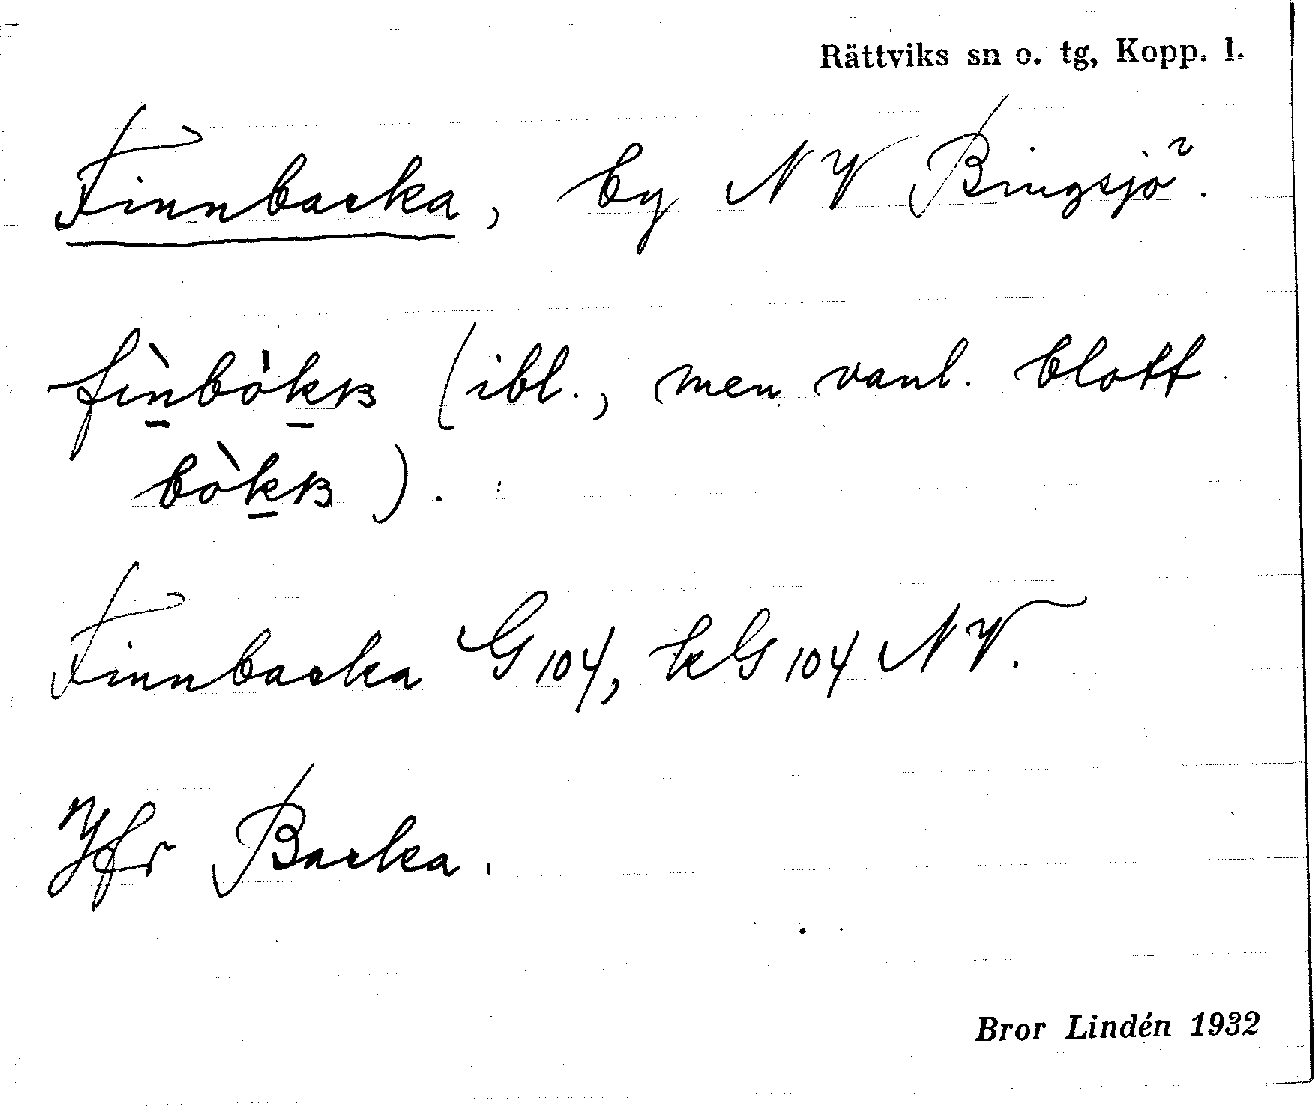 Rättviks sn o. tg, Kopp. l.
Finnbacka, by NV Bingsjö.
fìn̲bòk̲ʙ (ibl., men vanl. blott
bòk̲ʙ).
Finnbacka G 104, kG 104 NV.
Jfr Backa.
Bror Lindén 1932